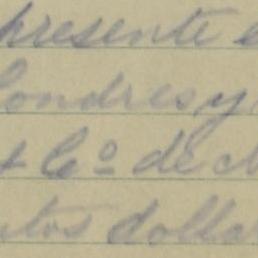 presente e
Londres y
& Cº de
tos dolla